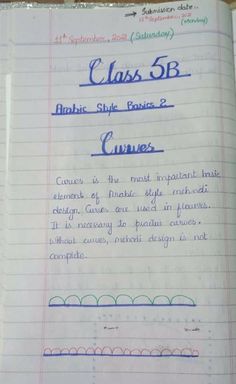 → Submission date..
13th September, 2021
(Monday)
11th September, 2021 (Saturday)
Class 5B
Arabic Style Basics 2
Curves
Curves is the most important basic
element of Arabic style mehndi
design. Curves are used in flowers.
It is necessary to practice curves.
without curves, mehndi design is not
complete.